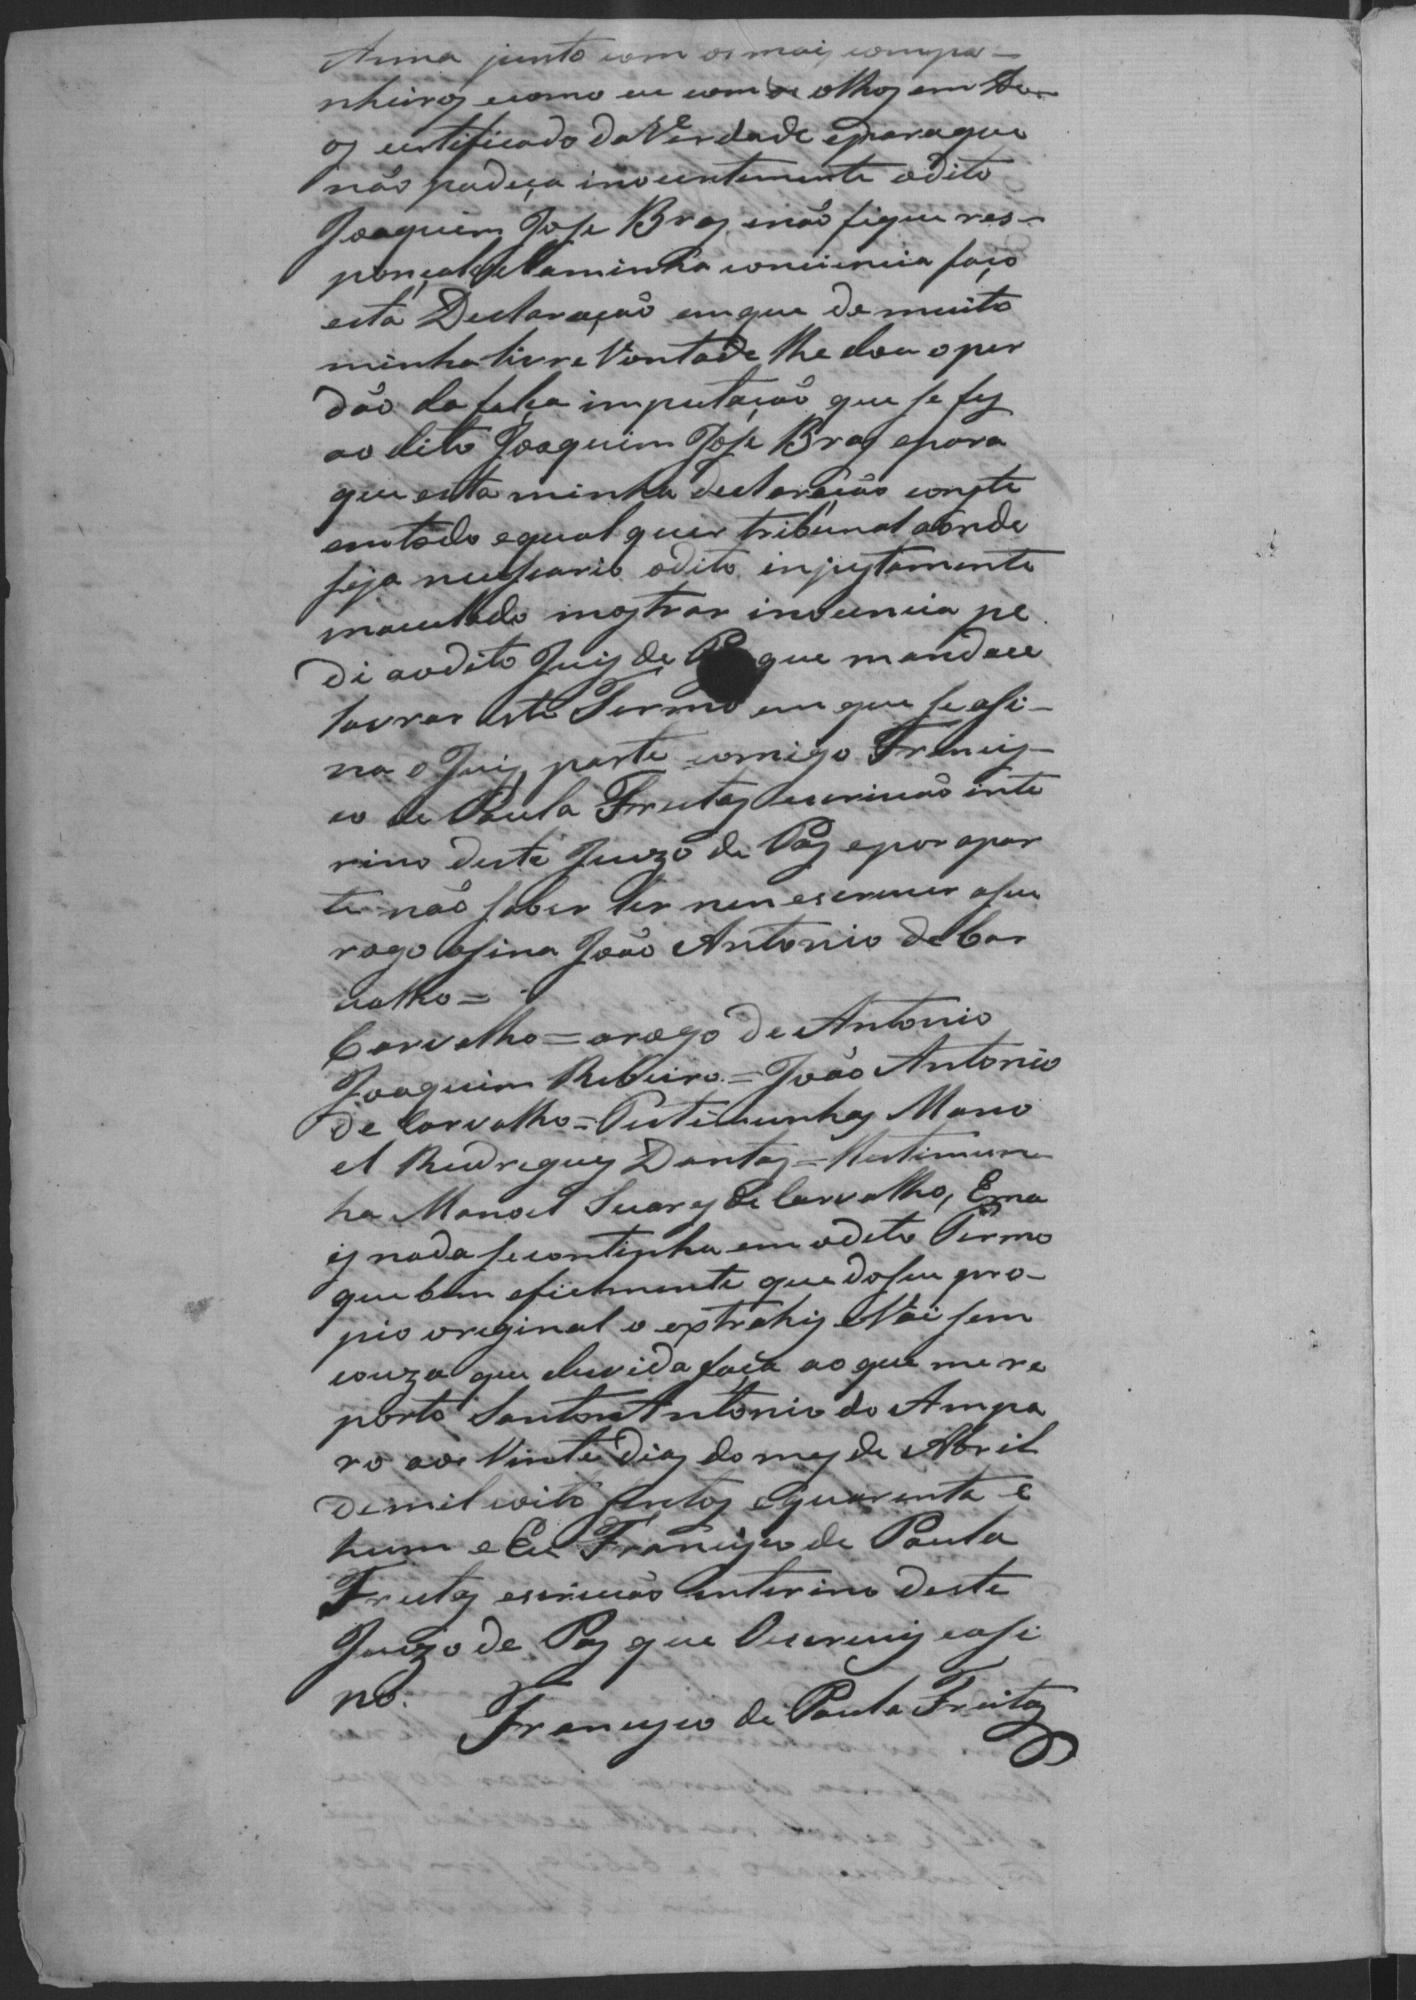 Anna junto com os mais compa-
nheiros ecomo eu com os olhos em De-
os certificado da Verdade eparaque
não padeça inocentemente odito
Joaquim Jose Bras enão fique res-
ponçabel aminha conciencia faço
esta Declaração emque de muito
minha livre Vontade lhe dou oper
dão da falça imputação que se fes
ao dito Joaquim Jose Bras epara
que esta minha declaração conste
emtodo equalquer tribunal aonde
seja necessario odito injustamente
maculado mostrar inocencia pe
di aodito Juis de que mandace
lavrar este Termo em que se asi-
na o Juis parte comigo Francis-
co de Paula Freitas escrivão inte
rino deste Juizo de Pas epor apar
te não saber ler nem escrever aseu
rogo asina João Antonio de Car
valho =
Carvalho = arogo de Antonio
Joaquim Ribeiro = João Antonio
de Carvalho = Testemunhas Mano
el Rudrigues Dantas = Testimun
ha Manoel Suares de Carvalho, Ema
is nada secontinha em odito Termo
que bem efielmente que doseu pro-
pio original o extrahis eVai sem
couza que duvida faça ao que me re
porto Santo Antonio do Ampa
ro aos Vinte dias do mes de Abril
demil eoito sentos equarenta e
hum e Eu Francisco de Paula
Freitas escrivão interino deste
Juizo de Pas que Oescrevis easi
no.
Francisco de Paula Freitas